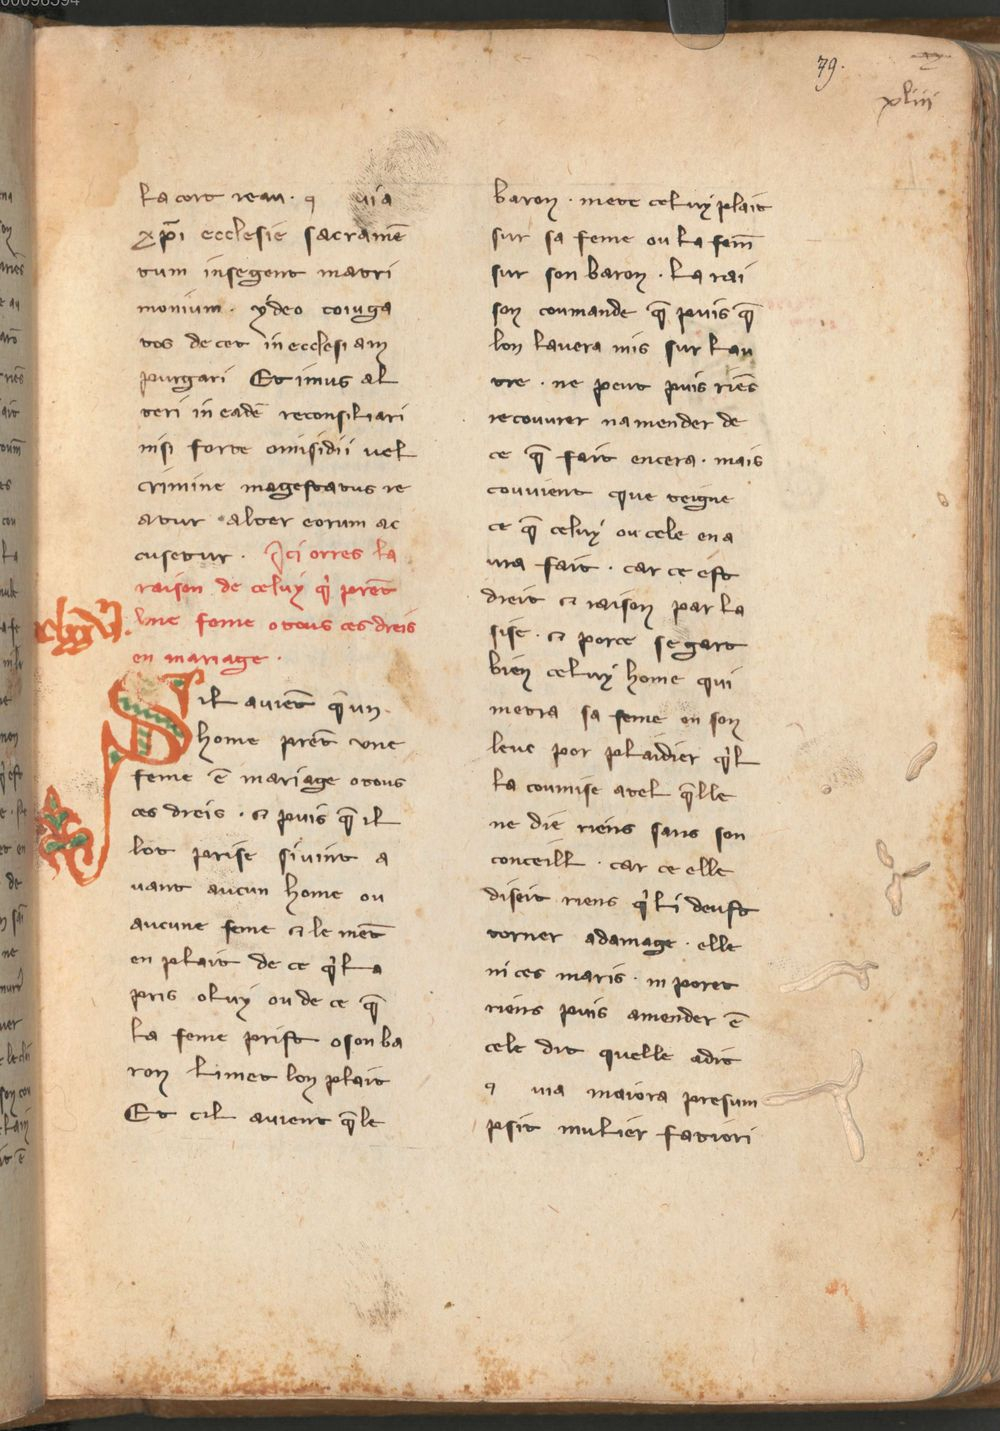 79.
xliii
La cort reau. q uia
xp̄i ecclesie sacramē
tum insegent matri
monium. ydeo coiuga
tos decet in ecclesiam
purgari Et imus al
teri in eadē reconsiliari
nisi forte omisidii vel
crimine magestatus re
atur alter eorum ac
cusetur. Ici orres la
raison de celuy q̇ prent̄
vne feme o tous ces dreis
en mariage.
Sil avient̄ q̄ un
home prent̄ vne
feme ē mariage o tous
ces dreis. & puis q̄ il
lot prise si vint a
vant aucun home ou
aucune feme & le met̄
en plait de ce q̇ l a
pris o luy ou de ce q̄
la feme prist o son ba
ron li met lon plait
Et cil avient q̄ le
baron. mete celuy plait
sur sa feme ou la fem̄
sur son baron. La rai
son coumande q̄ puis q̄
lon lavera mis sur lau
tre. ne peut puis riēs
recouvrer namender de
ce q̄ fait en cera. mais
couvient que teigne
ce q̄ celuy ou cele en a
vra fait. car ce est
dreit & raison par la
sise. & por ce se gart
bien celuy home qui
metra sa feme en son
leuc por plaidier q̇l
la coumise a tel q̄lle
ne die riens sans son
conceill. car ce elle
diseit riens q̇ li deust
torner a damage. elle
ni ces maris. ni poret
riens puis amender ē
cele dit quelle a dit
q uia maiora presum
psit mulier fatiori